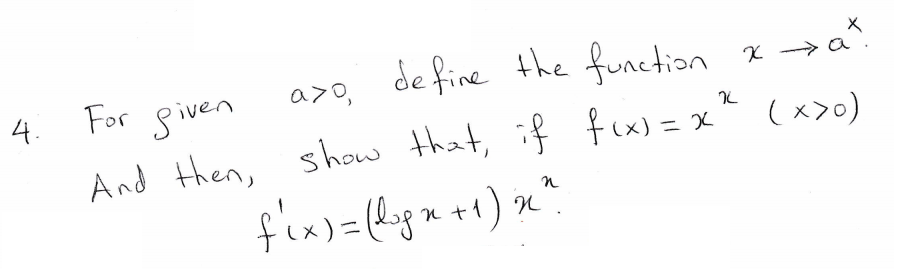 4. For given a>0, define the function x → aˣ.
And then, show that, if f(x) = xˣ (x>0)
f'(x) = (log x + 1) xˣ.